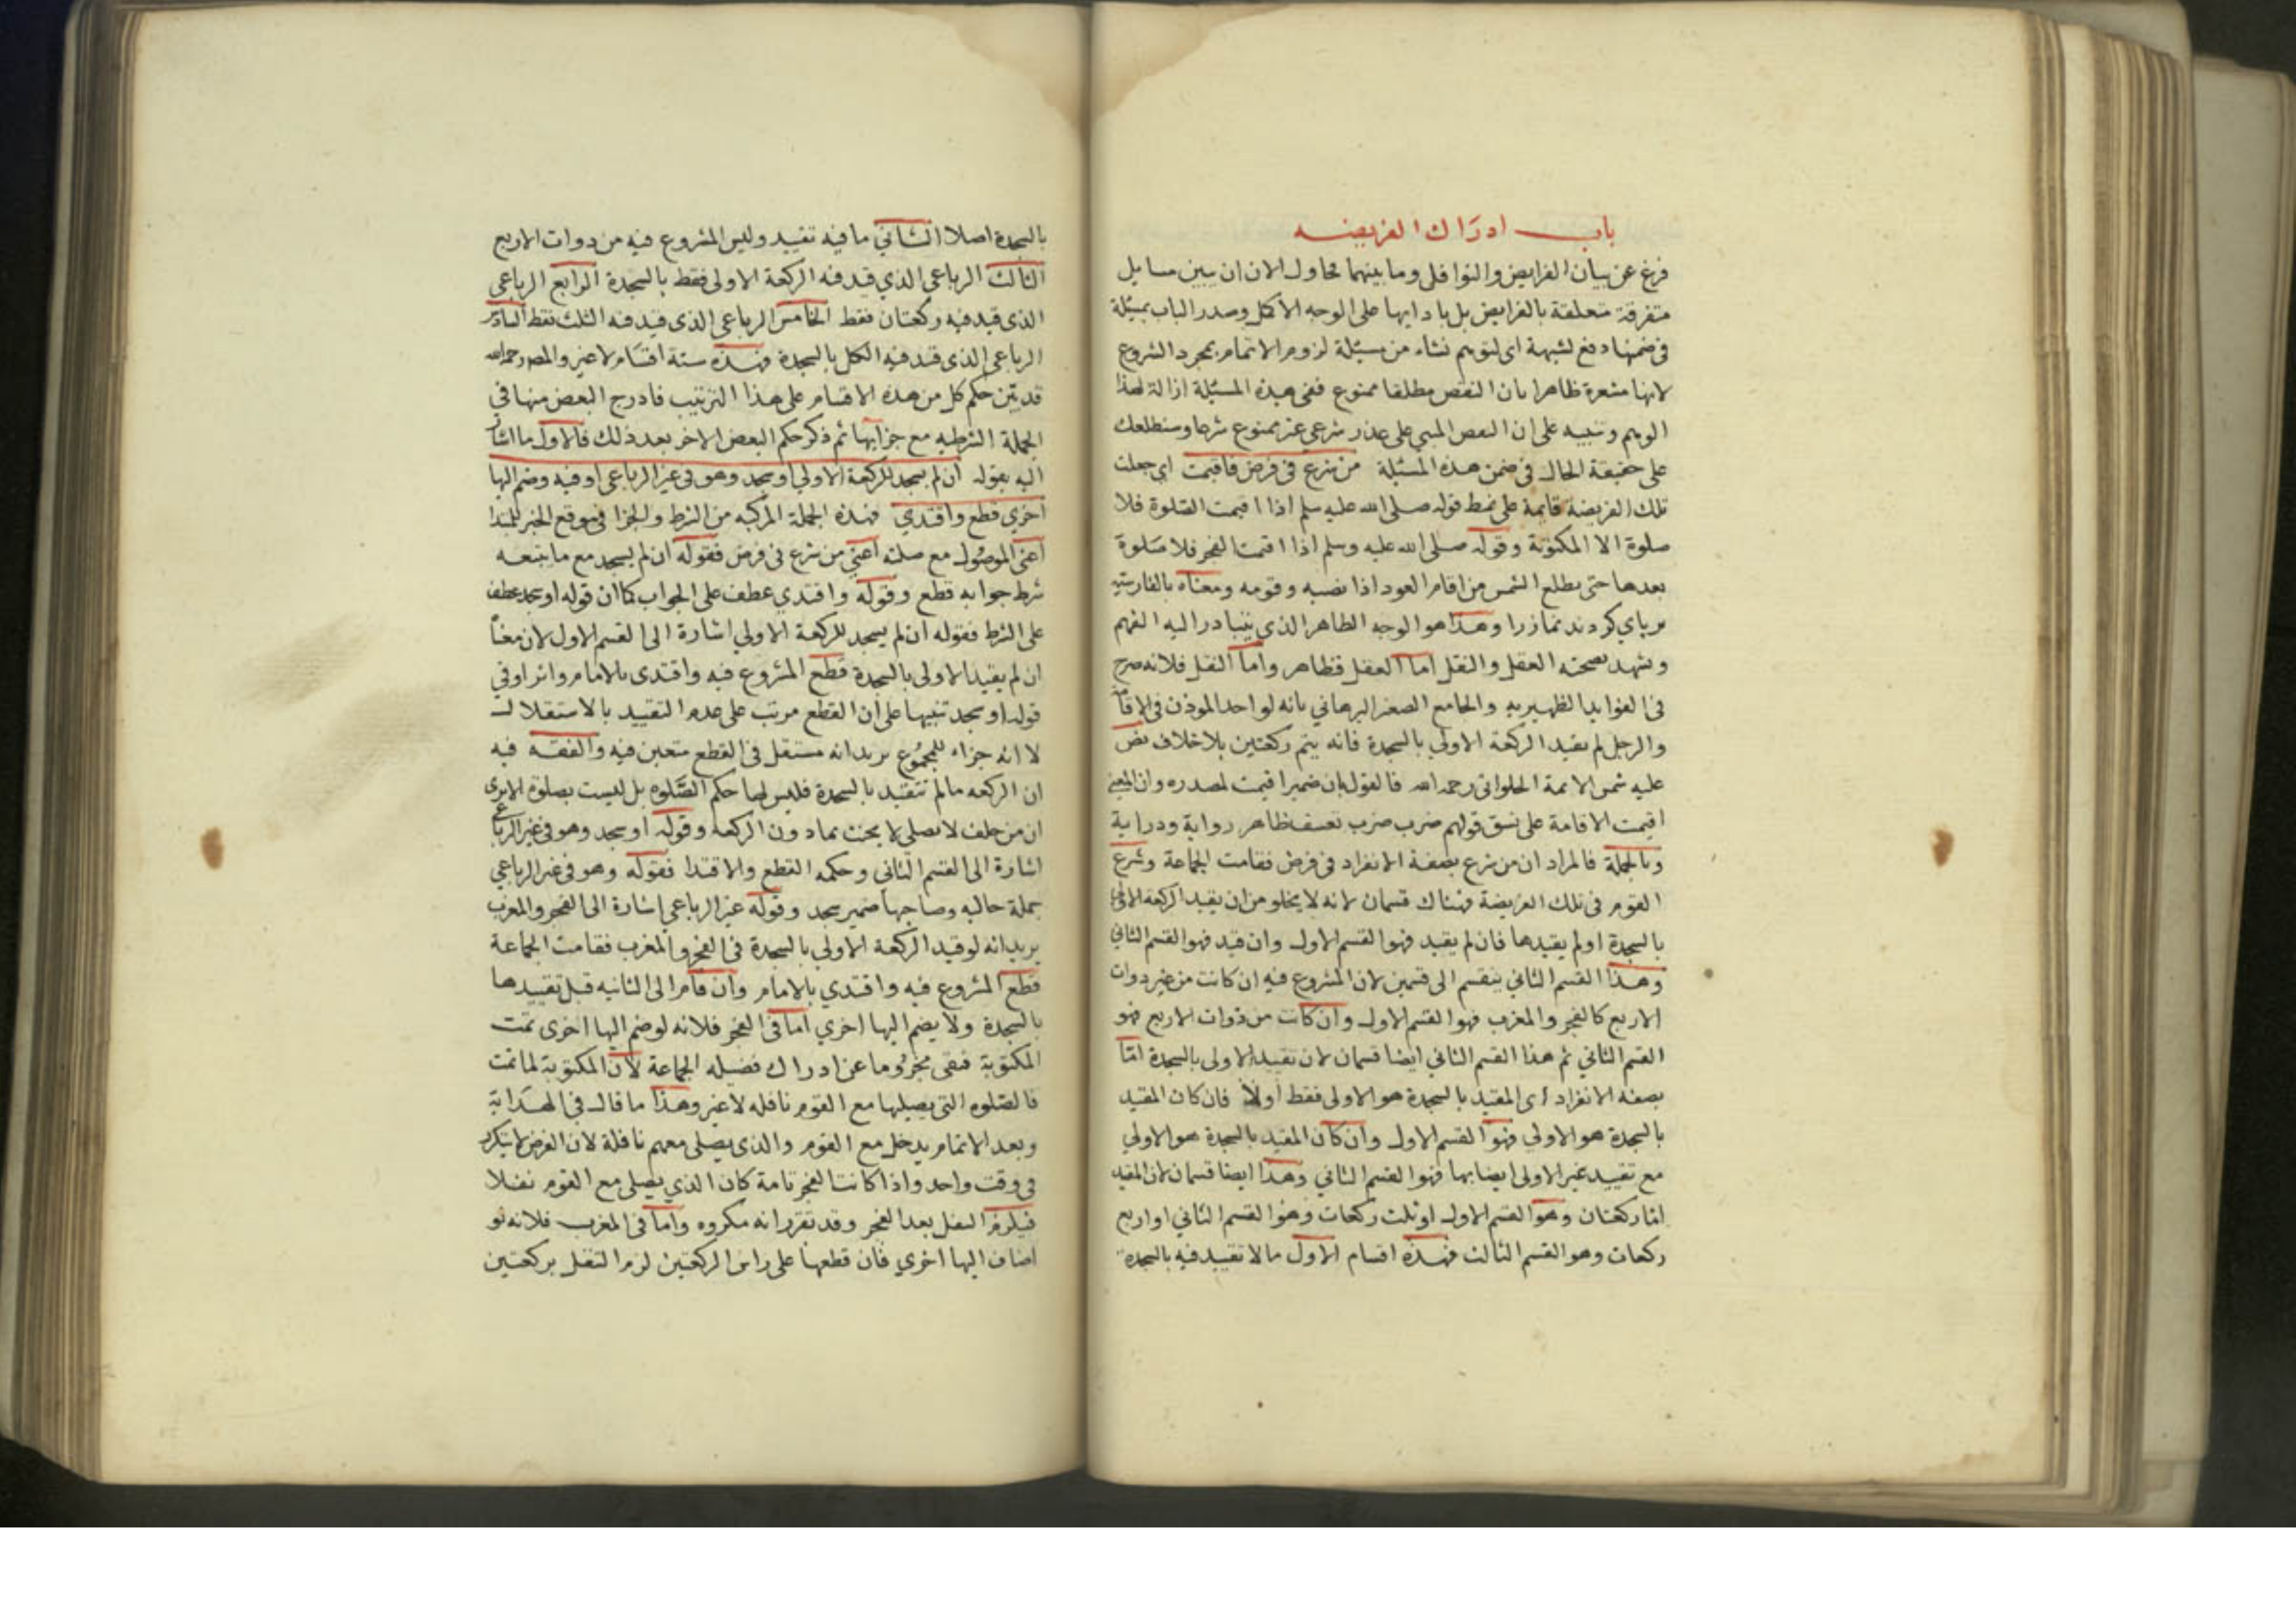 باب ادراك الفريضه
فرغ عن بيان الفرايض والنوافل وما بينهما محاول الان ان يبين مسايل
متفرقة متعلقة بالفرايض بل بادايها على الوجه الاكمل وصدر الباب بمسئلة
فى ضمنها دفع لشبهة اى لتوهم نشاء من مسئلة لزوم الاتمام بمجرد الشروع
لانها مشعرة ظاهرا بان النقض مطلقا ممنوع ففى هذه المسئلة ازالة لهذا
الوهم وتنبيه على ان النقض المبنى على عذر شرعي غير ممنوع شرعا وسنطلعك
على حقيقة الحال فى ضمن هذه المسئلة من شرع فى فرض فاقيمت اى جعلت
تلك الفريضة قايمة على نمط قوله صلى الله عليه سلم اذا اقيمت الصلوة فلا
صلوة الا المكتوبة وقوله صلى الله عليه وسلم اذا اقيمت الفجر فلا صلوة
بعدها حتى يطلع الشمس من اقام العود اذا نصبه وقومه ومعناه بالفارسية
بر پاي كردند نماز را وهذا هو الوجه الظاهر الذي يتبادر اليه الفهم
ويشهد بصحته العقل والنقل اما العقل فظاهر واما النقل فلانه صرح
فى الفوايد الظهيريه والجامع الصغير البرهاني بانه لو اخذ الموذن فى الاقامة
والرجل لم يقيد الركعة الاولي بالسجدة فانه يتم ركعتين بلا خلاف نص
عليه شمس الائمة الحلواني رحمه الله فالقول بان ضمير اقيمت لمصدره وان المعنى
اقيمت الاقامة على نسق قولهم ضرب ضرب تعسف ظاهر رواية ودراية
وبالجملة فالمراد ان من شرع بصفة الانفراد فى فرض فقامت الجماعة وشرع
القوم فى تلك الفريضة فهناك قسمان لانه لا يخلو من ان يقيد الركعة الاولى
بالسجدة او لم يقيدها فان لم يقيد فهو القسم الاول وان قيد فهو القسم الثاني
وهذا القسم الثاني ينقسم الى قسمين لان المشروع فيه ان كانت من غير دوات
الاربع كالفجر والمغرب فهو القسم الاول وان كانت من ذوات الاربع فهو
القسم الثاني ثم هذا القسم الثاني ايضا قسمان لان تقييد الاولى بالسجدة امّا
بصفه الانفراد اى المقيد بالسجدة هو الاولى فقط اولا فان كان المقيد
بالسجدة هو الاولي فهو القسم الاول وان كان المقيد بالسجدة هو الاولي
مع تقييد غير الاولى ايضا بها فهو القسم الثاني وهذا ايضا قسمان لان المقيد
امّا ركعتان وهو القسم الاول او ثلث ركعات وهو القسم الثاني او اربع
ركعات وهو القسم الثالث فهذه اقسام الاول ما لا تقييد فيه بالسجدة
بالسجدة اصلا الثاني ما فيه تقييد وليس المشروع فيه من دوات الاربع
الثالث الرباعى الذي قيد فيه الركعة الاولى فقط بالسجدة الرابع الرباعى
الذى قيد فيه ركعتان فقط الخامس الرباعى الذى قيد فيه الثلث فقط السادس
الرباعى الذى قيد فيه الكل بالسجدة فهذه ستة اقسام لا غير والمصر رحمه الله
قد بيّن حكم كل من هذه الاقسام على هذا الترتيب فادرج البعض منها فى
الجملة الشرطيه مع جزايها ثم ذكر حكم البعض الاخر بعد ذلك فالاول ما اشار
اليه بقوله ان لم يسجد للركعة الاولي او سجد وهو فى غير الرباعى او فيه وضم اليها
اخري قطع واقتدي فهذه الجملة المركبه من الشرط والجزا فى موقع الخبر للمبتدا
اعنى الموصول مع صلته اعنى من شرع فى فرض فقوله ان لم يسجد مع ما يتبعه
شرط جوابه قطع وقوله واقتدي عطف على الجواب كما ان قوله او سجد عطف
على الشرط فقوله ان لم يسجد للركعة الاولي اشارة الى القسم الاول لان معناه
ان لم يقيد الاولى بالسجدة قطع المشروع فيه واقتدى بالامام واثر او فى
قوله او سجد تنبيها على ان القطع مرتب على عدم التقييد بالاستقلال
لا انه جزاء للمجموع يريد انه مستقل فى القطع متعين فيه والفقه فيه
ان الركعه ما لم تتقيد بالسجدة فليس لها حكم الصّلوه بل ليست بصلوة الا يرى
ان من حلف لا يصلى لا يحنث بما دون الركعة وقوله او سجد وهو فى غير الرباعى
اشارة الى القسم الثانى وحكمه القطع والاقتدا فقوله وهو فى غير الرباعي
جملة حاليه وصاحبها ضمير سجد وقوله غير الرباعي اشارة الى الفجر والمغرب
يريد انه لو قيد الركعة الاولي بالسجدة فى الفجر والمغرب فقامت الجماعة
قطع المشروع فيه واقتدي بالامام وان قام الى الثانيه قبل تقييدها
بالسجدة ولا يضم اليها اخري اما فى الفجر فلانه لو ضم اليها اخرى تمت
المكتوبة فبقى محروما عن ادراك فضيله الجماعة لان المكتوبة لما تمت
فالصّلوه التى يصليها مع القوم نافله لا غير وهذا ما قال فى الهداية
وبعد الاتمام يدخل مع القوم والذى يصلى معهم نافلة لان الفرض لا يتكرر
فى وقت واحد واذا كانت الفجر تامة كان الذي يصلى مع القوم نفلا
فيلزم النفل بعد الفجر وقد تقرر انه مكروه واما فى المغرب فلانه لو
اضاف اليها اخري فان قطعها على راس الركعتين لزم التنفل بركعتين